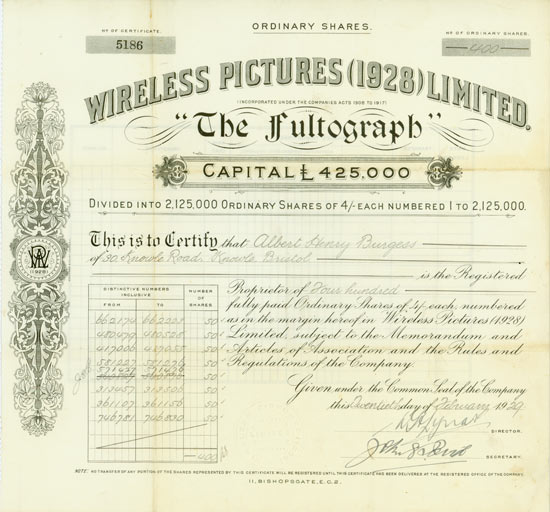 ORDINARY SHARES.
No OF CERTIFICATE.
5186
No OF ORDINARY SHARES.
400
WIRELESS PICTURES (1928) LIMITED.
(INCORPORATED UNDER THE COMPANIES ACTS 1908 TO 1917)
"The Fultograph"
CAPITAL £425,000
DIVIDED INTO 2,125,000 ORDINARY SHARES OF 4/- EACH NUMBERED 1 TO 2,125,000.
This is to Certify that Albert Henry Burgess
of 30 Knowle Road, Knowle Bristol
is the Registered
Proprietor of Four hundred
fully paid Ordinary Shares of 4/- each, numbered
as in the margin hereof in Wireless Pictures (1928)
Limited, subject to the Memorandum and
Articles of Association and the Rules and
Regulations of the Company.
Given under the Common Seal of the Company
this Twentieth day of February 1929
DIRECTOR.
SECRETARY.
(1928)
DISTINCTIVE NUMBERS INCLUSIVE
NUMBER OF SHARES
FROM
TO
50
50
50
50
50
50
361107 361156 50
746781 746830 50
400
NOTE: NO TRANSFER OF ANY PORTION OF THE SHARES REPRESENTED BY THIS CERTIFICATE WILL BE REGISTERED UNTIL THIS CERTIFICATE HAS BEEN DELIVERED AT THE REGISTERED OFFICE OF THE COMPANY.
11, BISHOPSGATE, E.C.2.